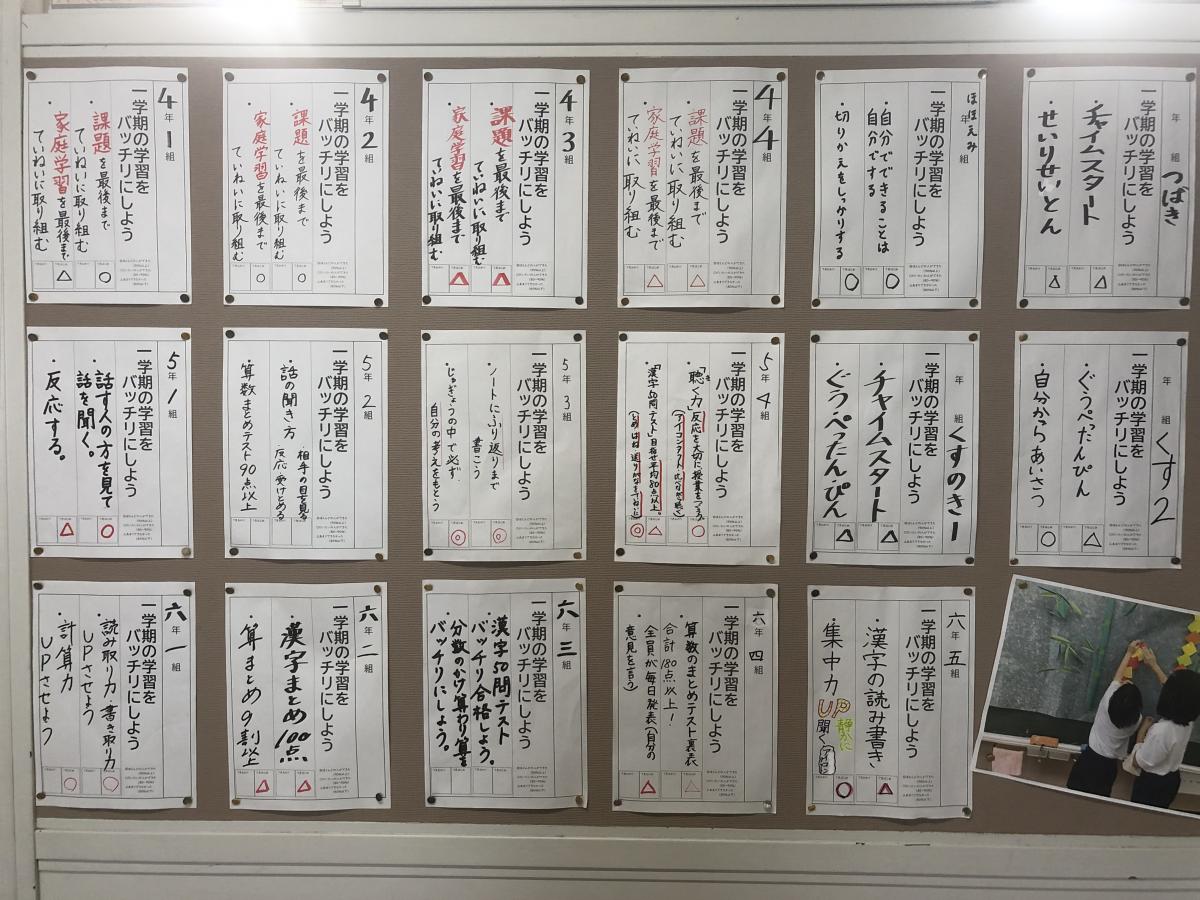 4年1組
一学期の学習を
バッチリにしよう
・課題を最後まで
ていねいに取り組む
・家庭学習を最後まで
ていねいに取り組む
○
△
4年2組
一学期の学習を
バッチリにしよう
・課題を最後まで
ていねいに取り組む
・家庭学習を最後まで
ていねいに取り組む
○
○
4年3組
一学期の学習を
バッチリにしよう
・課題を最後まで
ていねいに取り組む
・家庭学習を最後まで
ていねいに取り組む
△
△
4年4組
一学期の学習を
バッチリにしよう
・課題を最後まで
ていねいに取り組む
・家庭学習を最後まで
ていねいに取り組む
△
△
ほほえみ年組
一学期の学習を
バッチリにしよう
・自分でできることは
自分でする
・切りかえをしっかりする
○
○
年つばき組
一学期の学習を
バッチリにしよう
・チャイムスタート
・せいりせいとん
△
△
5年1組
一学期の学習を
バッチリにしよう
・話す人の方を見て
話を聞く。
・反応する。
○
△
5年2組
一学期の学習を
バッチリにしよう
・話の聞き方
・相手の目を見る
・反応 受けとめる
・算数まとめテスト90点以上
5年3組
一学期の学習を
バッチリにしよう
・ノートにふり返りまで
書こう
・じゅぎょうの中で必ず
自分の考えをもとう
◎
◎
5年4組
一学期の学習を
バッチリにしよう
・「聴く力」反応を大切に授業をつくる。
・「漢字50問テスト」目指せ平均80点以上。
○
△
◎
年組くすのき1
一学期の学習を
バッチリにしよう
・チャイムスタート
・ぐうぺったんぴん
△
△
年組くす2
一学期の学習を
バッチリにしよう
・ぐうぺったんぴん
・自分からあいさつ
△
○
六年一組
一学期の学習を
バッチリにしよう
・読み取り力・書き取り力
UPさせよう
・計算力
UPさせよう
○
○
六年二組
一学期の学習を
バッチリにしよう
・漢字まとめ100点
・算まとめ9割以上
△
△
六年三組
一学期の学習を
バッチリにしよう
・漢字50問テスト
バッチリ合格しよう。
・分数のかけ算わり算を
バッチリにしよう。
六年四組
一学期の学習を
バッチリにしよう
・算数のまとめテスト裏表
合計180点以上!
・全員が毎日発表(自分の
意見を言う)
△
△
六年五組
一学期の学習を
バッチリにしよう
・漢字の読み書き
・集中力UP
静かに
聞く
△
○